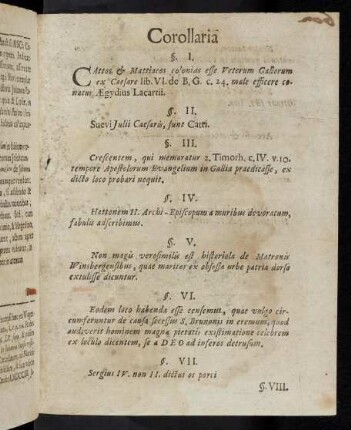 Corollaria
§. I.
Cattos & Mattiacos colonias esse Veterum Gallorum
ex Caesare lib. VI. de B. G. c. 24. male efficere co-
natur Ægydius Lacarrii.
§. II.
Suevi Julii Caesaris, sunt Catti.
§. III.
Crescentem, qui memoratur 2. Timoth. c. IV. v. 10.
tempore Apostolorum Evangelium in Gallia praedicasse, ex
dicto loco probari nequit.
§. IV.
Hattonem II. Archi-Episcopum a muribus devoratum,
fabulis adscribimus.
§. V.
Non magis verosimilis est historiola de Matronis
Winsbergensibus, quae maritos ex obsessa urbe patria dorso
extulisse dicuntur.
§. VI.
Eodem loco habenda esse censemus, quae vulgo cir-
cumferuntur de causa secessus S. Brunonis in eremum, quod
audiverit hominem magna pietatis existimatione celebrem
ex loculo dicentem, se a DEO ad inferos detrusum.
§. VII
Sergius IV. non II. dictus os porci
§. VIII.